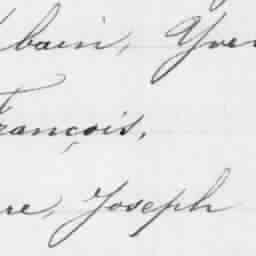 bain, Yves
François,
re, Joseph